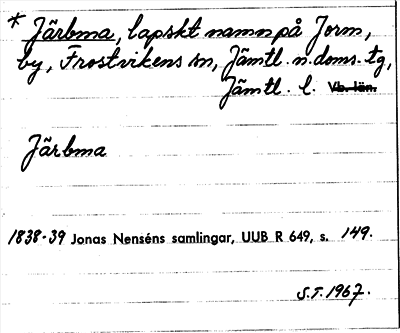 * Järbma, lapskt namn på Jorm,
by, Frostvikens sn, Jämtl. n. doms. tg,
Jämtl. l. Vb. län.
Järbma
1838-39 Jonas Nenséns samlingar, UUB R 649, s. 149.
S.T. 1967.